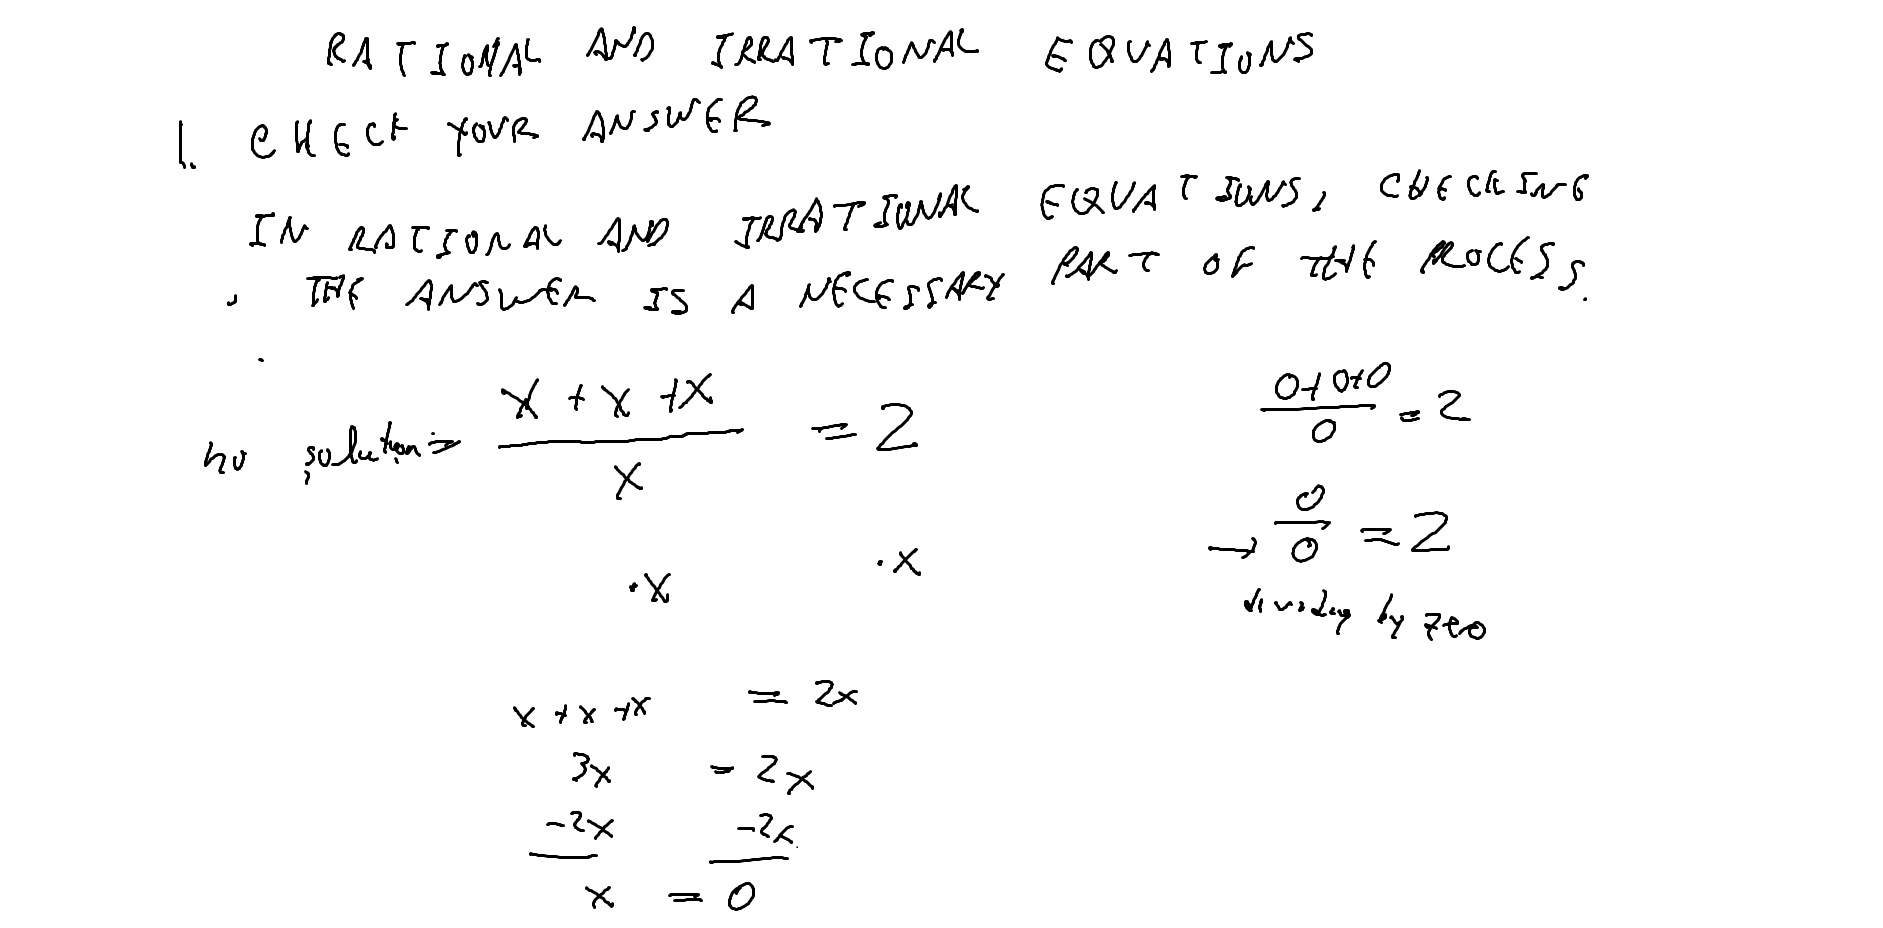 RATIONAL AND IRRATIONAL EQUATIONS
1. CHECK YOUR ANSWER
IN RATIONAL AND IRRATIONAL EQUATIONS, CHECKING
THE ANSWER IS A NECESSARY PART OF THE PROCESS.
x + x + x
no solution = 2
x
·x ·x
x + x + x = 2x
3x = 2x
-2x -2x
x = 0
0+0+0
= 2
0
→ 0/0 = 2
dividing by zero